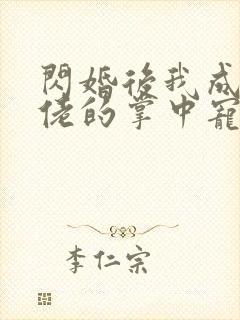 閃婚後我成
佬的掌中寵
李仁宗